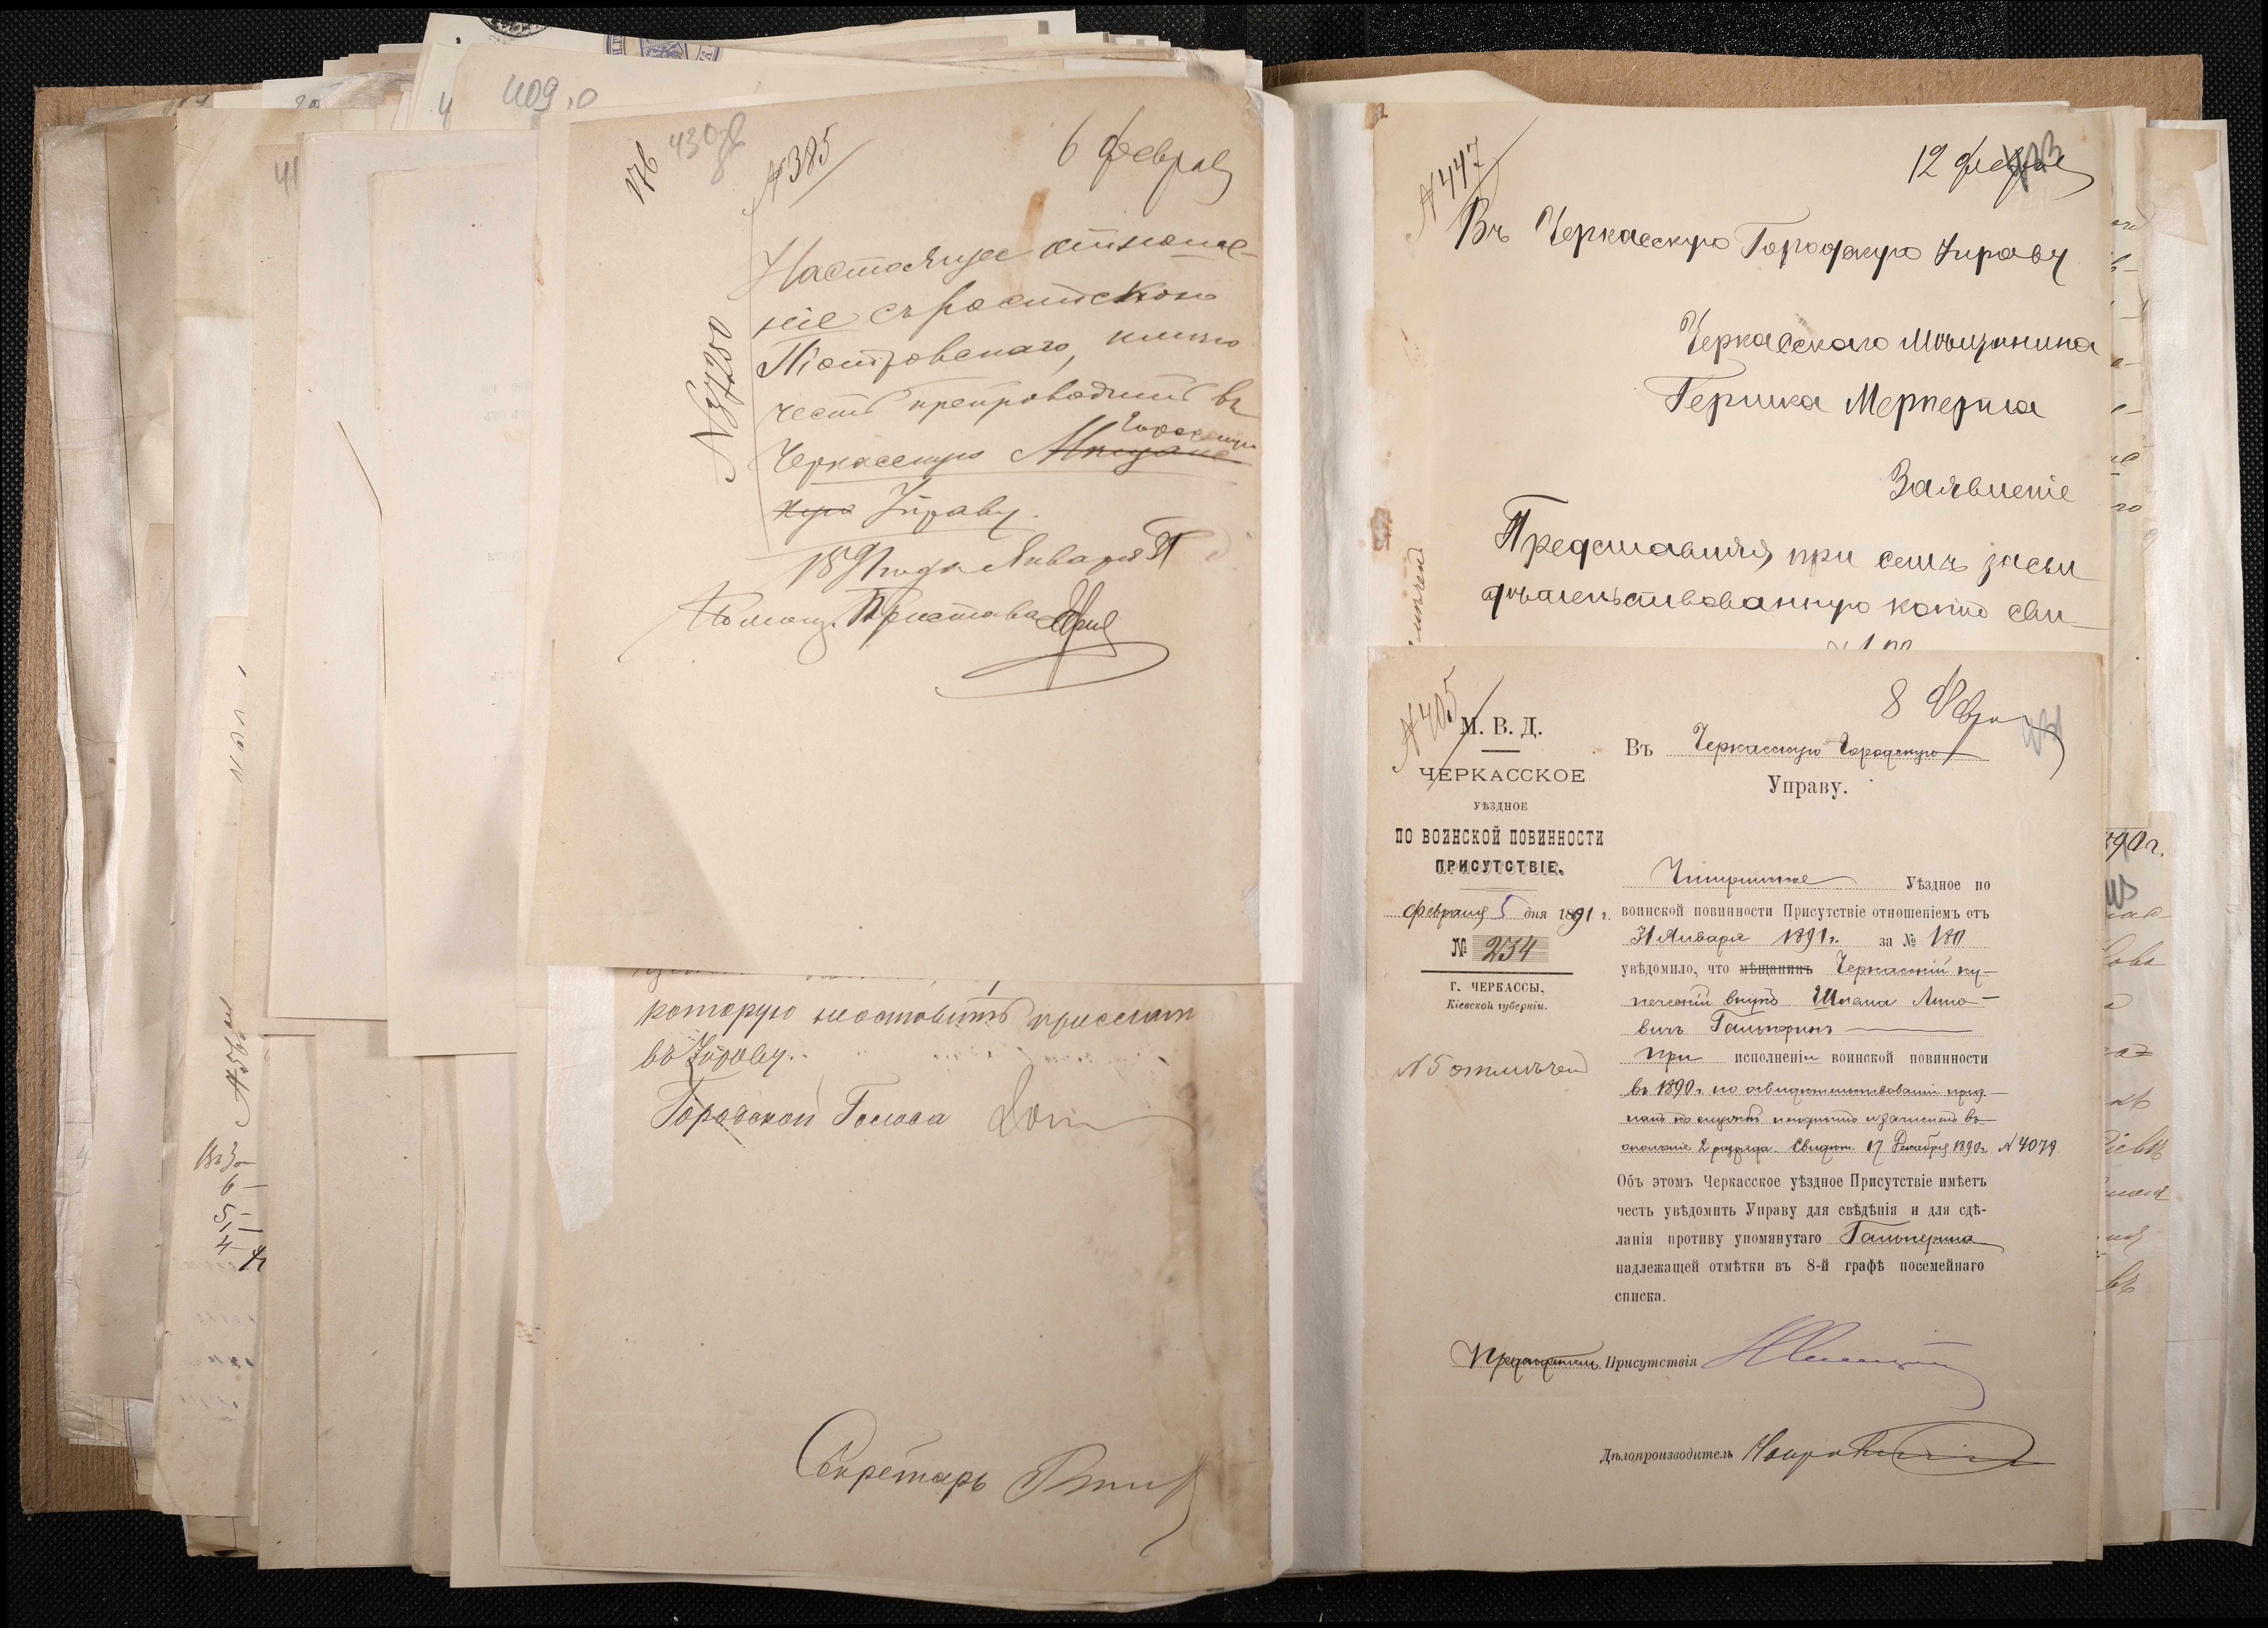 409
176
№ 385
6 Февраля
Настоящее отноше-
ніе съ роспискою
Піотровскаго, имѣю
честь препроводить въ
Городскую
Черкасскую Мѣщанс
кую Управу.
1891 года Января 31
Помощ. Пристава
№ 37200
которую неставитъ прислать
въ Управу.
Городской Голова
Секретарь
№ 447
12 февраля
Въ Черкасскую Городскую Управу
Черкасскаго Мѣщанина
Гершка Мерперта
Заявленіе
Представляя при семъ засви
дѣтельствованную копію сви-
№ 405
8 Февра
М. В. Д.
ЧЕРКАССКОЕ
УѢЗДНОЕ
ПО ВОИНСКОЙ ПОВИННОСТИ
ПРИСУТСТВІЕ.
Февраля 5 дня 1891 г.
№ 234
Г. ЧЕРКАССЫ,
Кіевской губерніи.
№ 5 отмѣчен
Въ Черкасскую Городскую
Управу.
Чигиринское Уѣздное по
воинской повинности Присутствіе отношеніемъ отъ
31 Января 1891 г. за № 180
увѣдомило, что мѣщанинъ Черкасскій ку-
печескій внукъ Шлема
вичъ Гальперинъ
при исполненіи воинской повинности
въ 1890 г. по освидѣтельствованіи приз-
нанъ къ службѣ негоднымъ и зачисленъ въ
ополченіе 2 разряда. Свидѣт. 17 Декабря 1890 г. № 4079
Объ этомъ Черкасское уѣздное Присутствіе имѣетъ
честь увѣдомить Управу для свѣдѣнія и для сдѣ-
ланія противу упомянутаго Гальперина
надлежащей отмѣтки въ 8-й графѣ посемейнаго
списка.
Предсѣдатель Присутствія
Дѣлопроизводитель